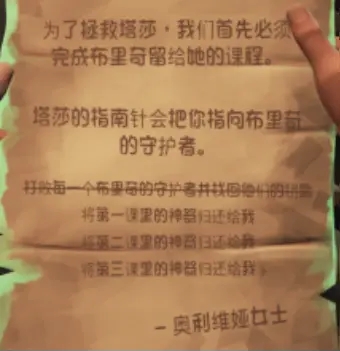 为了拯救塔莎，我们首先必须
完成布里奇留给她的课程。
塔莎的指南针会把你指向布里奇
的守护者。
打败每一个布里奇的守护者并找回他们的钥匙
将第一课里的神器归还给我
将第二课里的神器归还给我
将第三课里的神器归还给我
- 奥利维娅女士